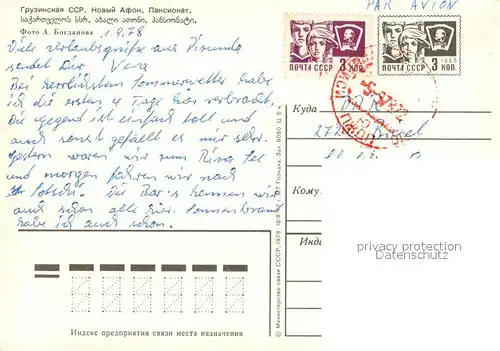 PAR AVION
Грузинская ССР. Новый Афон. Пансионат.
საქართველოს სსრ. ახალი ათონი. პანსიონატი.
Фото А. Богданова
1.9.78
Viele Urlaubsgrüße aus Pizunda
sendet Dir Vera
Bei herrlichstem Sommerwetter habe
ich die ersten 4 Tage hier verbracht.
Die Gegend ist einfach toll und
auch sonst gefällt es mir sehr.
Gestern waren wir zum Riza See
und morgen fahren wir nach
Sotschi. Die Bar's kennen wir
auch schon alle hier. Sonnenbrand
habe ich auch schon.
ПОЧТА СССР 3 КОП.
ПОЧТА СССР 3 КОП.
Куда
Кому
Индекс предприятия связи места назначения
© Министерство связи СССР, 1978
privacy protection
watermark